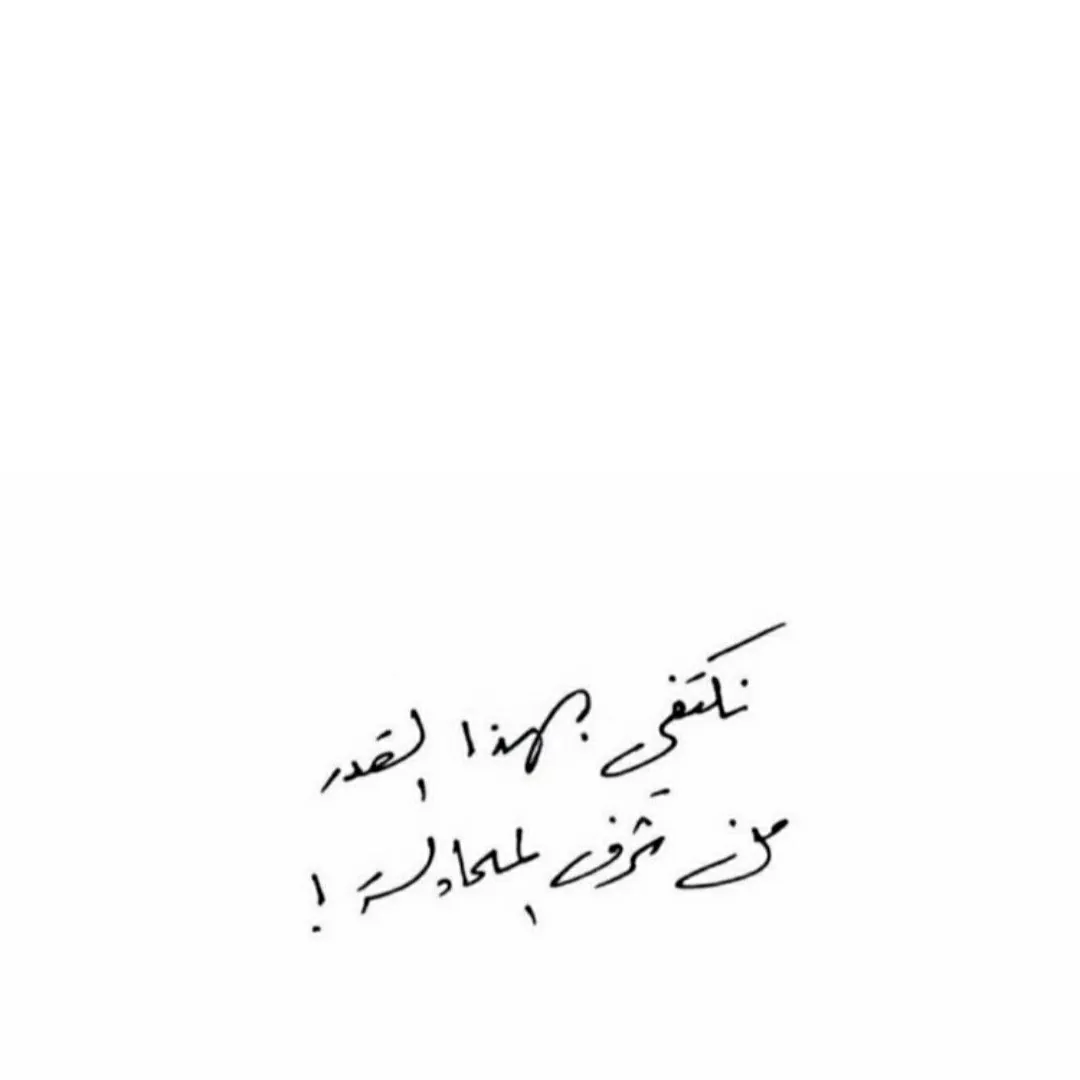 نكتفي بهذا القدر
من شَرف المحاولة !